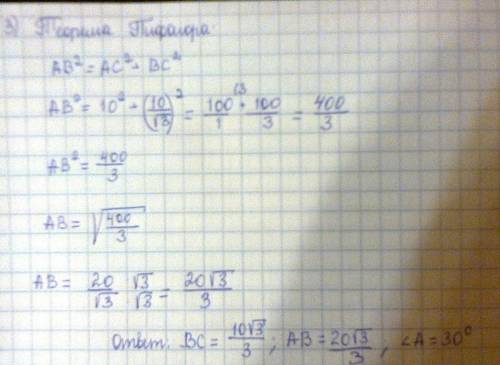 3) Теорема Пифагора
AB² = AC² + BC²
AB² = 10² + (10/√3)² = 100/1 (3 + 100/3 = 400/3
AB² = 400/3
AB = √(400/3)
AB = 20/√3 √3/√3 = 20√3/3
Ответ: BC = 10√3/3; AB = 20√3/3, ∠A = 30°